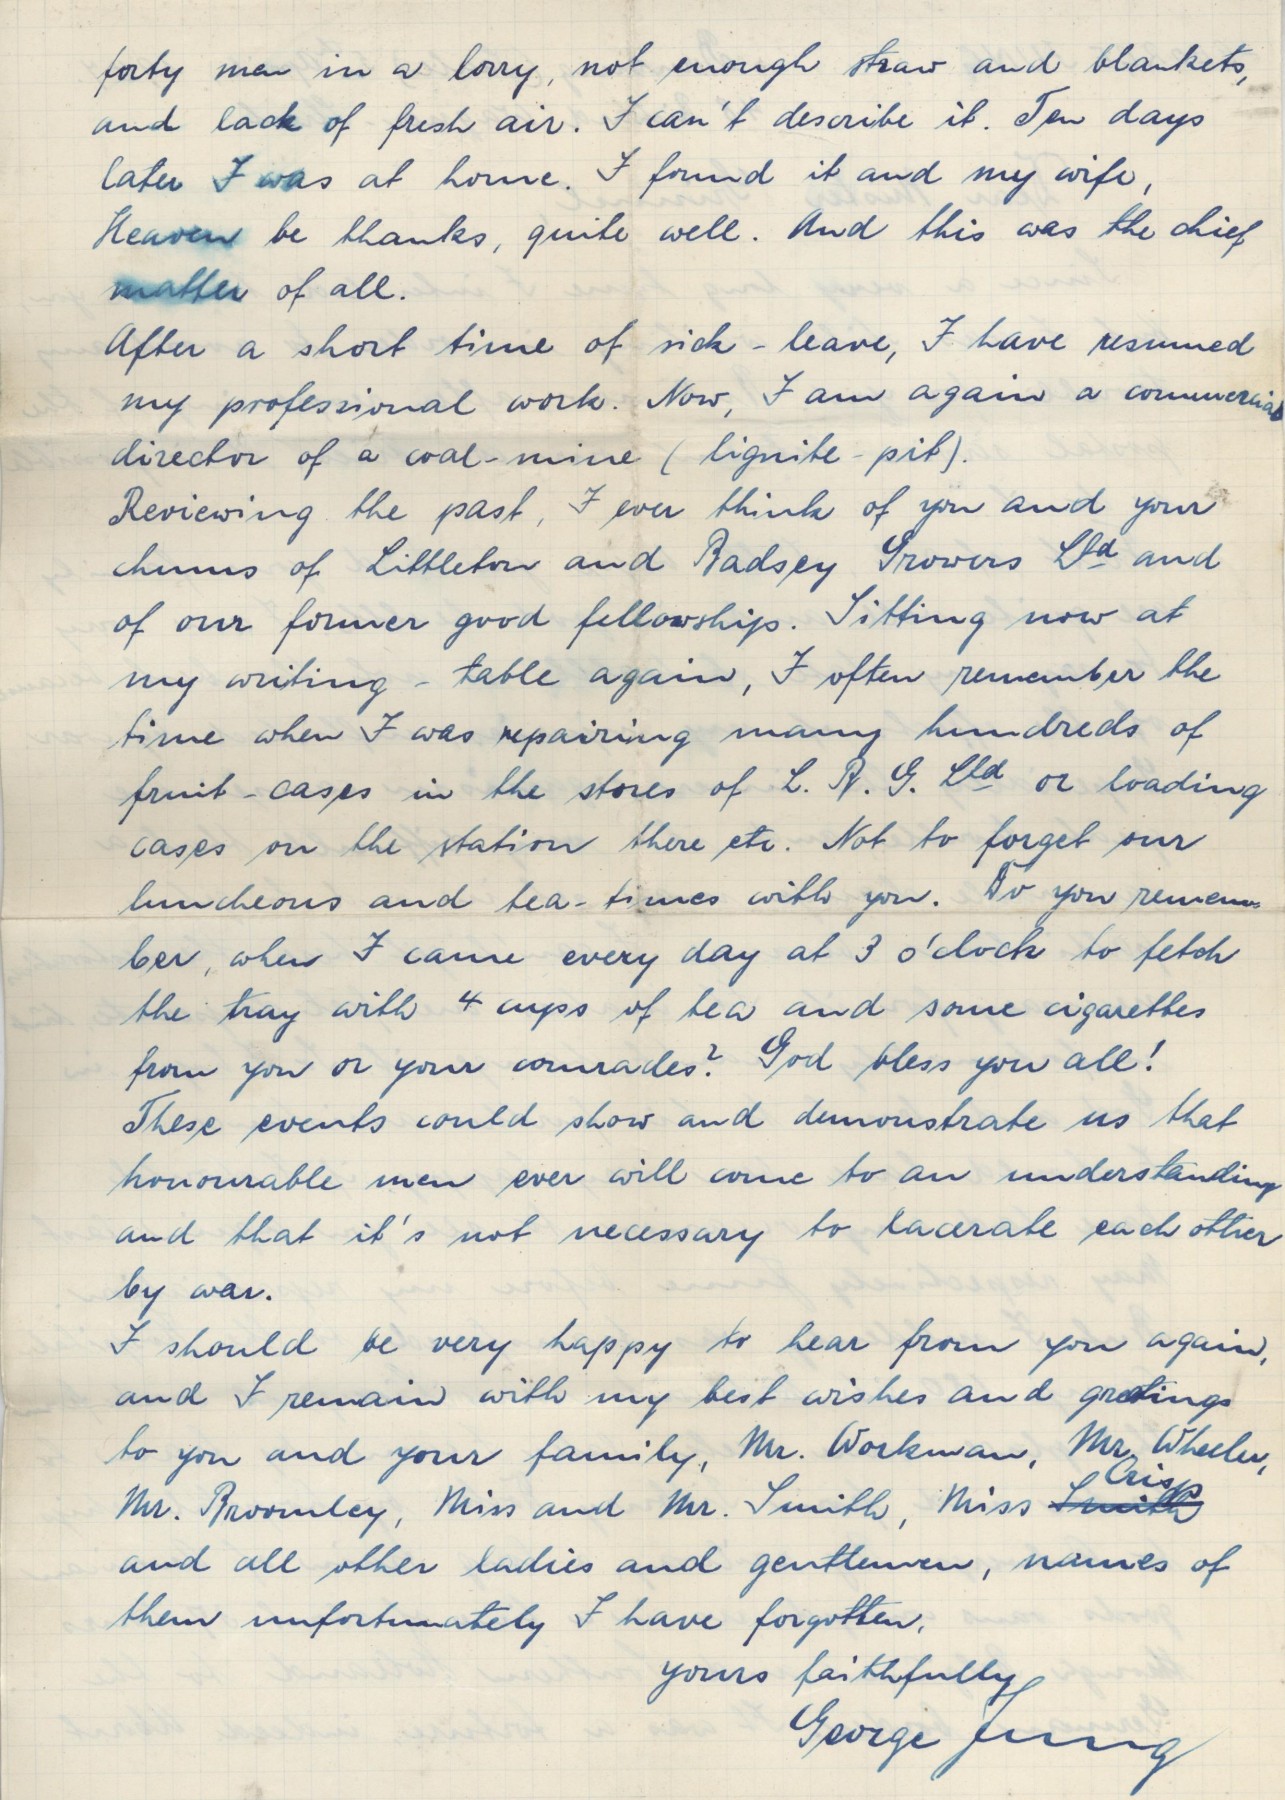 forty men in a lorry, not enough straw and blankets,
and lack of fresh air. I can't describe it. Ten days
later I was at home. I found it and my wife,
Heaven be thanks, quite well. And this was the chief
matter of all.
After a short time of sick-leave, I have resumed
my professional work. Now, I am again a commercial
director of a coal-mine (lignite-pit).
Reviewing the past, I ever think of you and your
chums of Littleton and Badsey Growers Ltd and
of our former good fellowship. Sitting now at
my writing-table again, I often remember the
time when I was repairing many hundreds of
fruit-cases in the stores of L. B. G. Ltd or loading
cases on the station there etc. Not to forget our
luncheons and tea-times with you. Do you remem-
ber, when I came every day at 3 o'clock to fetch
the tray with 4 cups of tea and some cigarettes
from you or your comrades? God bless you all!
These events could show and demonstrate us that
honourable men ever will come to an understanding
and that it's not necessary to lacerate each other
by war.
I should be very happy to hear from you again,
and I remain with my best wishes and greetings
to you and your family, Mr. Workman, Mr. Wheeler,
Mr. Broomley, Miss and Mr. Smith, Miss Smith Crisp
and all other ladies and gentlemen, names of
them unfortunately I have forgotten.
yours faithfully
George Jung